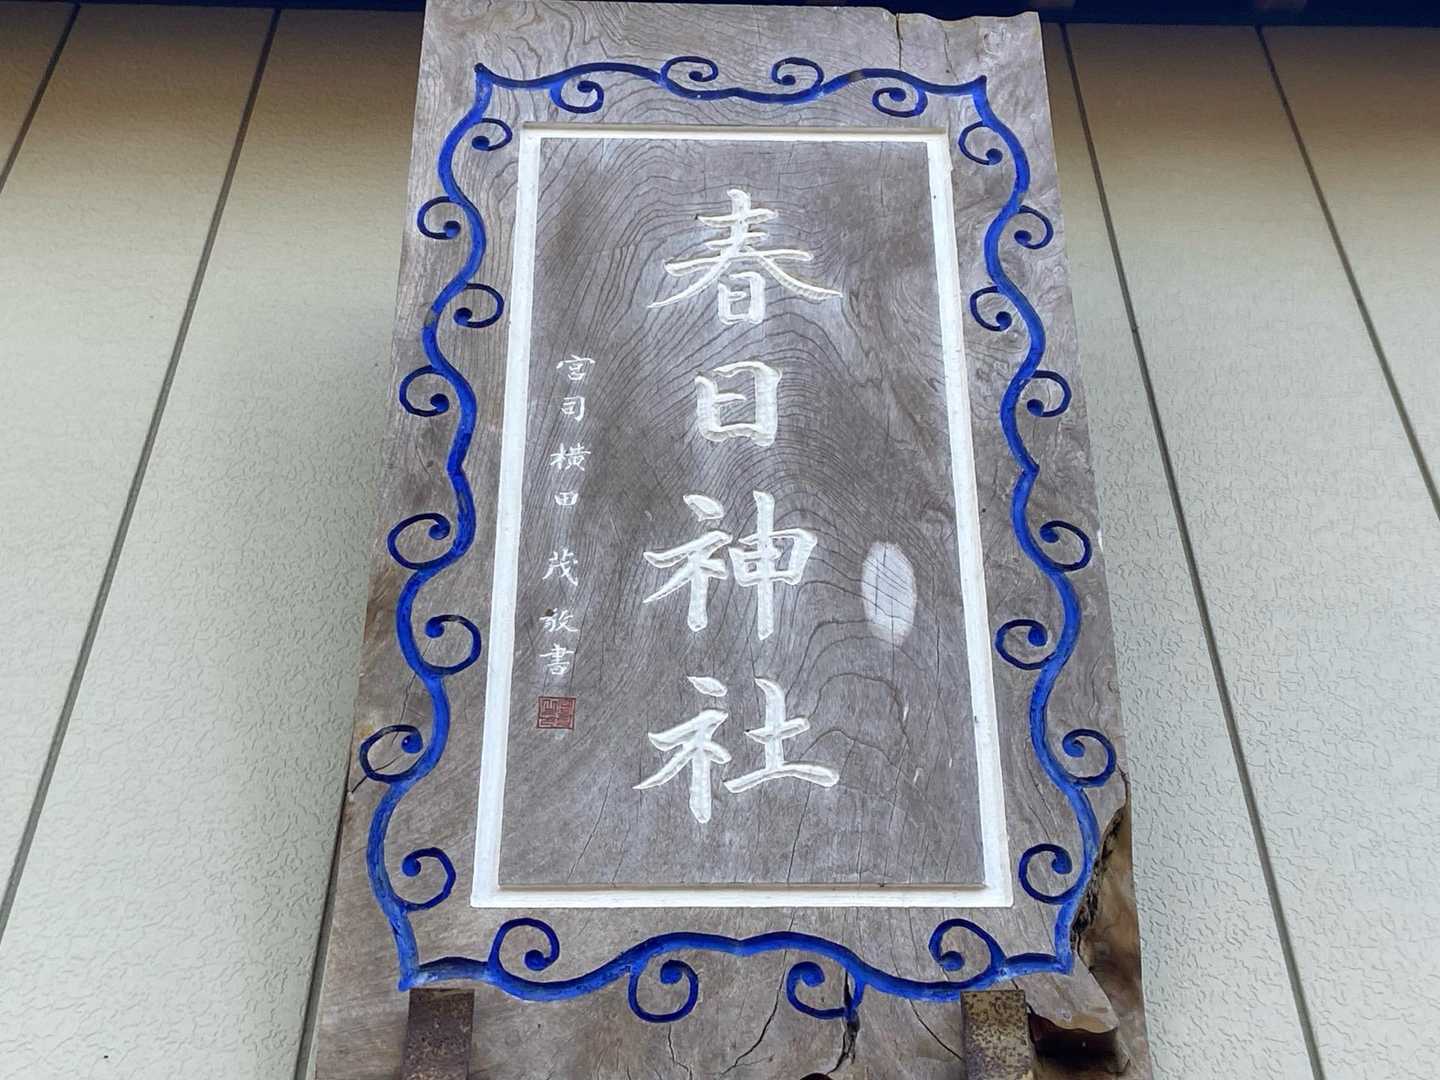 春日神社
宮司 横田 茂 敬書